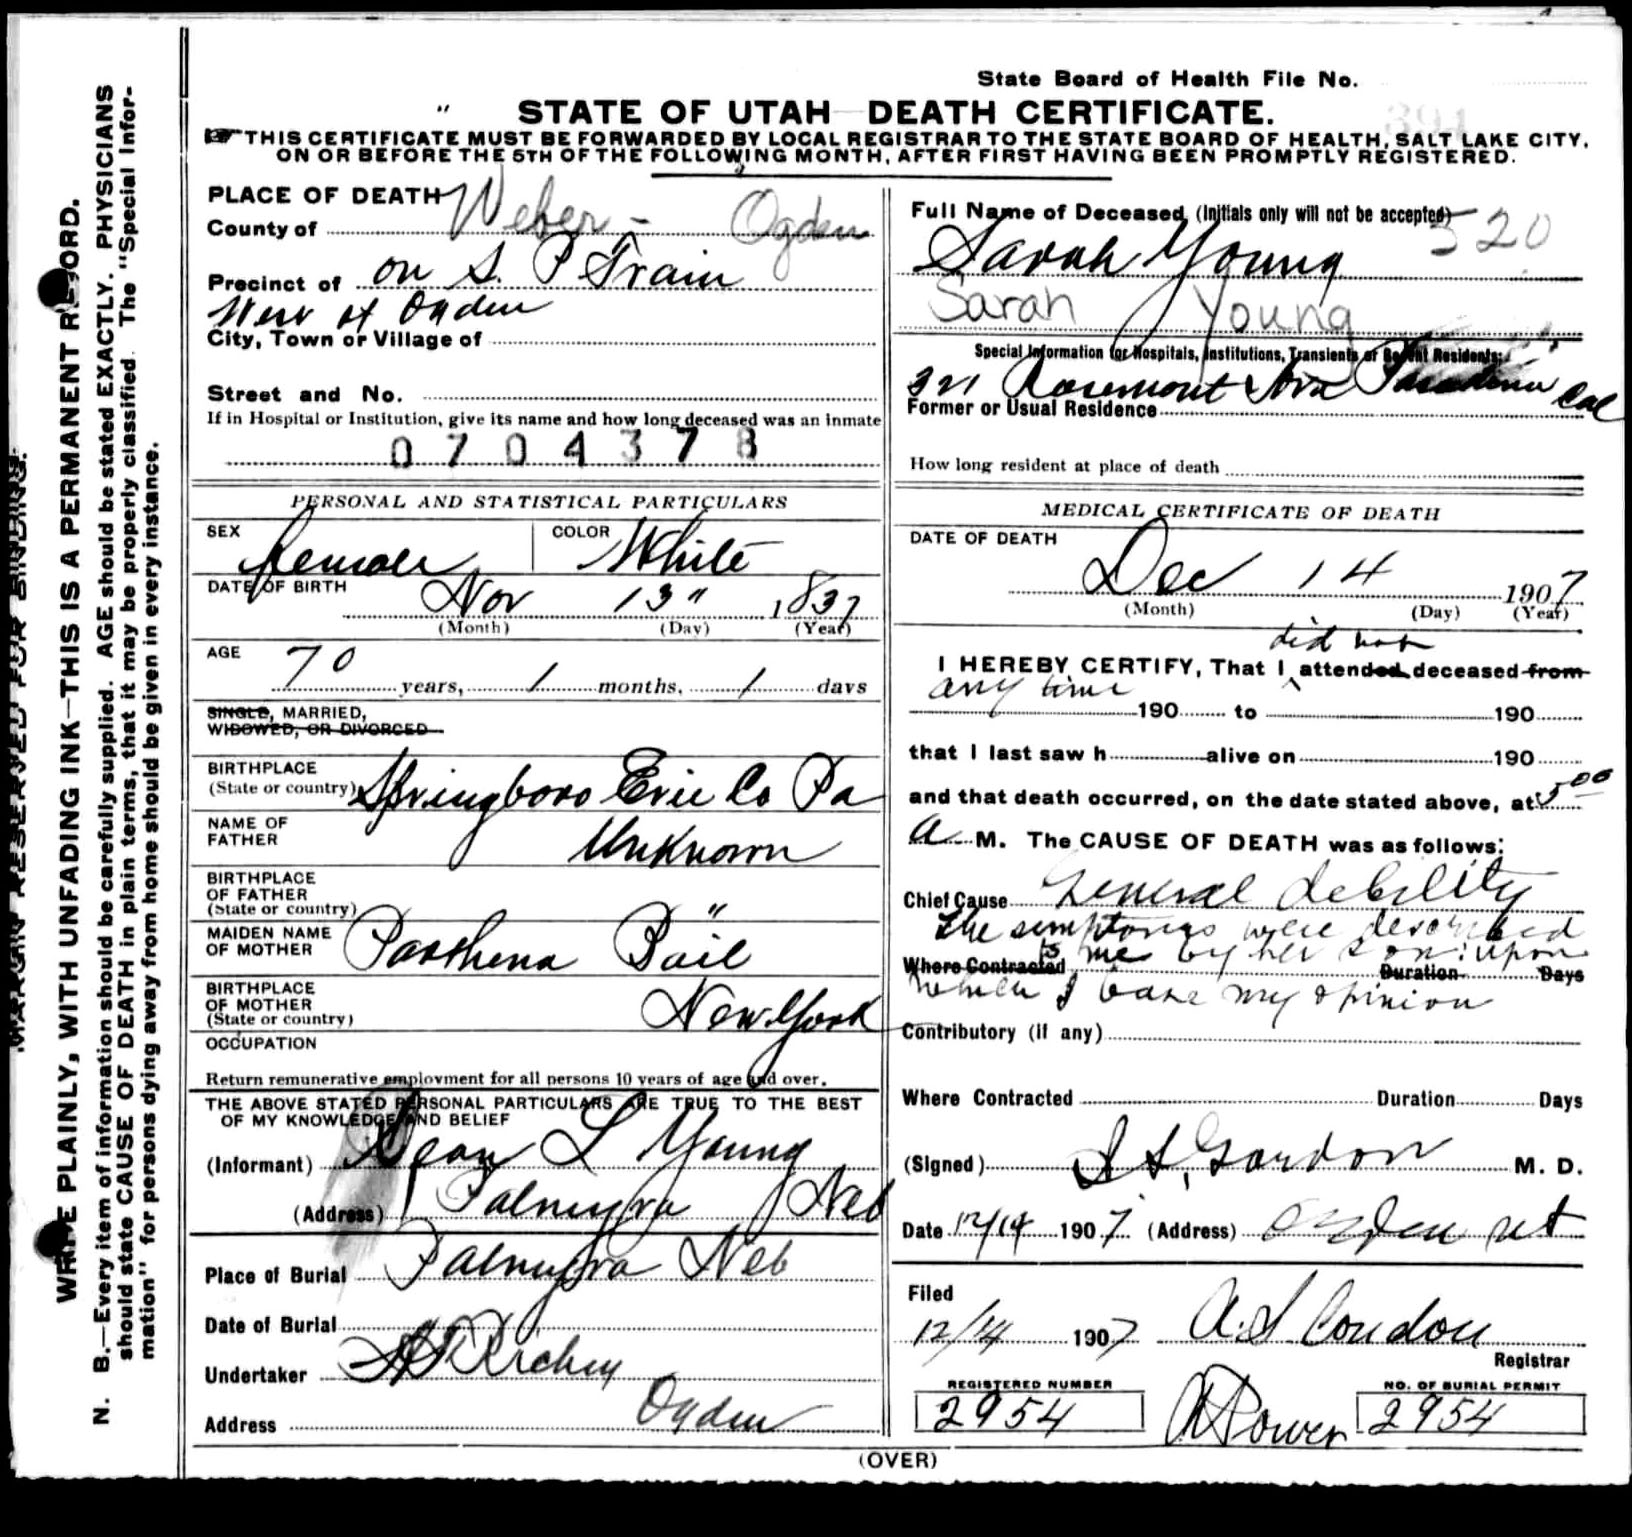 State Board of Health File No.
394
STATE OF UTAH DEATH CERTIFICATE.
THIS CERTIFICATE MUST BE FORWARDED BY LOCAL REGISTRAR TO THE STATE BOARD OF HEALTH, SALT LAKE CITY,
ON OR BEFORE THE 5TH OF THE FOLLOWING MONTH, AFTER FIRST HAVING BEEN PROMPTLY REGISTERED.
MARGIN RESERVED FOR BINDING.
WRITE PLAINLY, WITH UNFADING INK—THIS IS A PERMANENT RECORD.
N. B.—Every item of information should be carefully supplied. AGE should be stated EXACTLY. PHYSICIANS
should state CAUSE OF DEATH in plain terms, that it may be properly classified. The "Special Infor-
mation" for persons dying away from home should be given in every instance.
PLACE OF DEATH
County of Weber - Ogden
Precinct of on S. P Train
West of Ogden
City, Town or Village of
Street and No.
If in Hospital or Institution, give its name and how long deceased was an inmate
0704378
PERSONAL AND STATISTICAL PARTICULARS
SEX Female COLOR White
DATE OF BIRTH Nov 13" 1837
(Month) (Day) (Year)
AGE 70 years, 1 months, 1 days
SINGLE, MARRIED,
WIDOWED, OR DIVORCED
BIRTHPLACE
(State or country) Springboro Erie Co Pa
NAME OF
FATHER Unknown
BIRTHPLACE
OF FATHER
(State or country) "
MAIDEN NAME
OF MOTHER Parthena Bail
BIRTHPLACE
OF MOTHER
(State or country) New York
OCCUPATION
Return remunerative employment for all persons 10 years of age and over.
THE ABOVE STATED PERSONAL PARTICULARS ARE TRUE TO THE BEST
OF MY KNOWLEDGE AND BELIEF
(Informant) Dean L Young
(Address) Palmyra Neb
Place of Burial Palmyra Neb
Date of Burial
Undertaker Richey
Address Ogden
Full Name of Deceased (Initials only will not be accepted) 520
Sarah Young
Sarah Young
Special Information for Hospitals, Institutions, Transients or Recent Residents:
321 Rosemont Ave Pasadena Cal
Former or Usual Residence
How long resident at place of death
MEDICAL CERTIFICATE OF DEATH
DATE OF DEATH
Dec 14 1907
(Month) (Day) (Year)
did not
I HEREBY CERTIFY, That I attended deceased from
any time
190 to 190
that I last saw h alive on 190
and that death occurred, on the date stated above, at 5 00
A M. The CAUSE OF DEATH was as follows:
Chief Cause General debility
The symptoms were described
to me by her son: upon
Where Contracted Duration Days
which I base my opinion
Contributory (if any)
Where Contracted Duration Days
(Signed) Gordon M. D.
Date 12/14 1907 (Address) Ogden Ut
Filed
12/14 1907 A. S Condon
Registrar
REGISTERED NUMBER NO. OF BURIAL PERMIT
2954 Power 2954
(OVER)